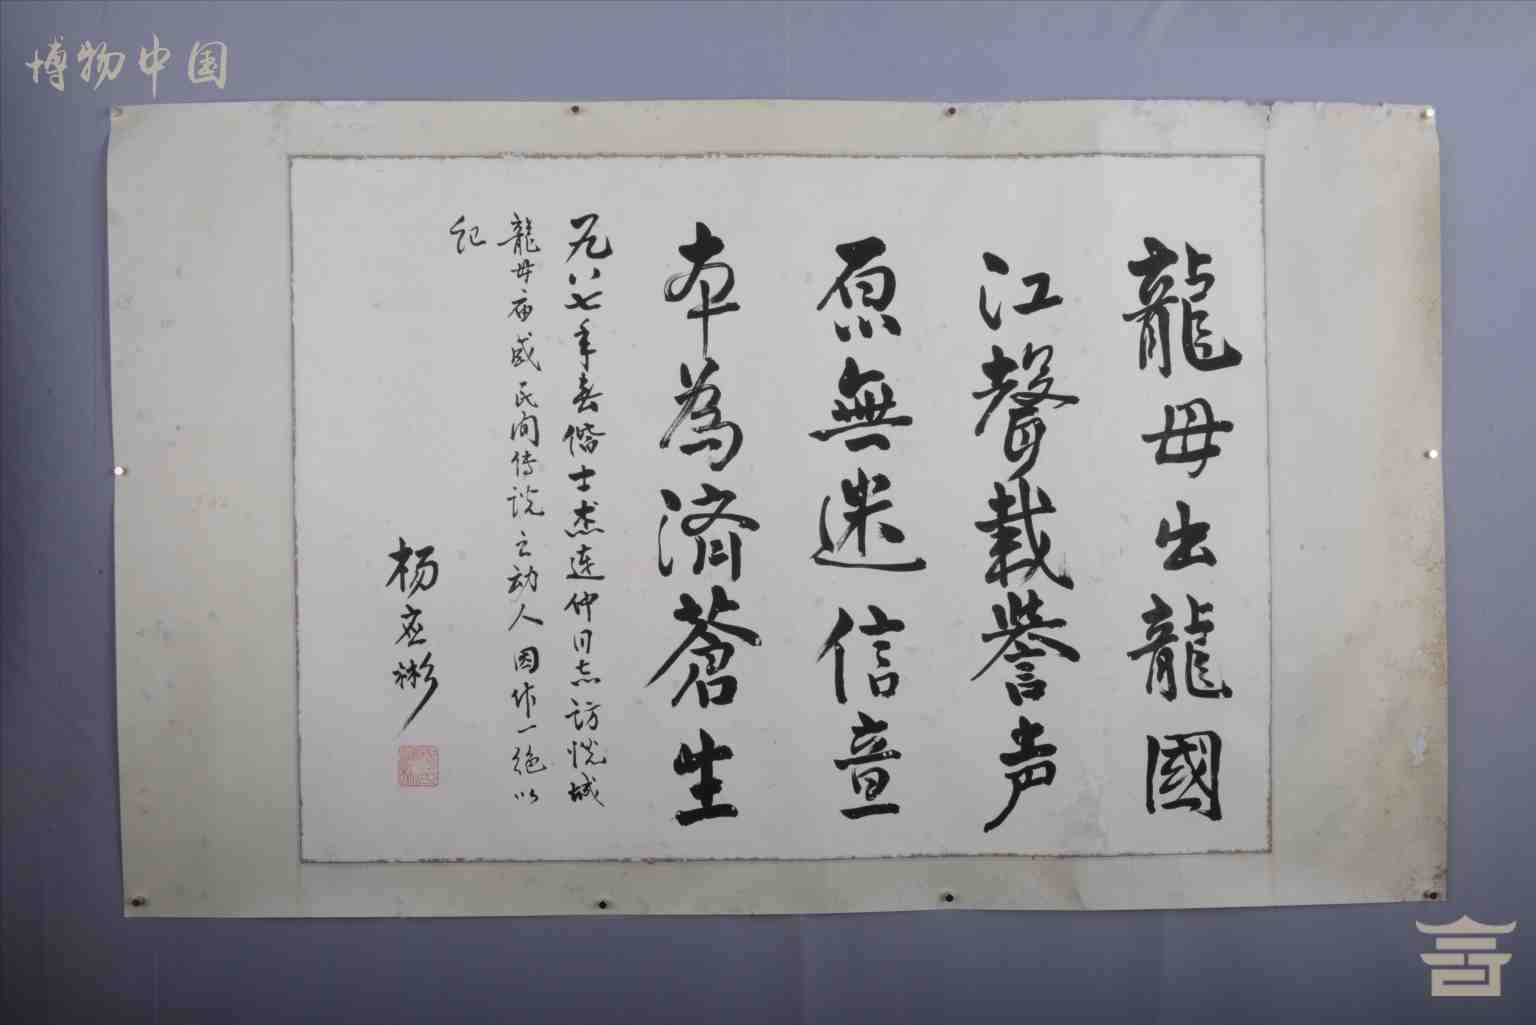 博物中国
龍母出龍國
江聲載譽声
原無迷信意
本為濟蒼生
一九八七年春偕士杰连仲同志访悦城
龍母庙感民间传说之动人因作一绝以
纪
杨应彬